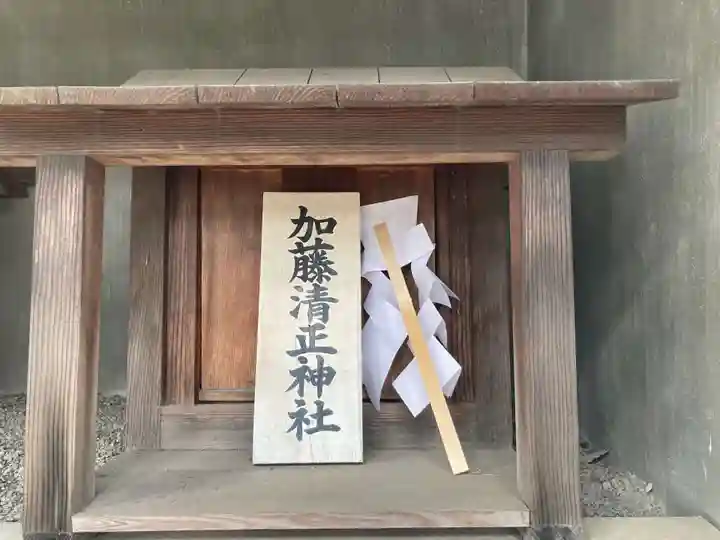 加藤清正神社